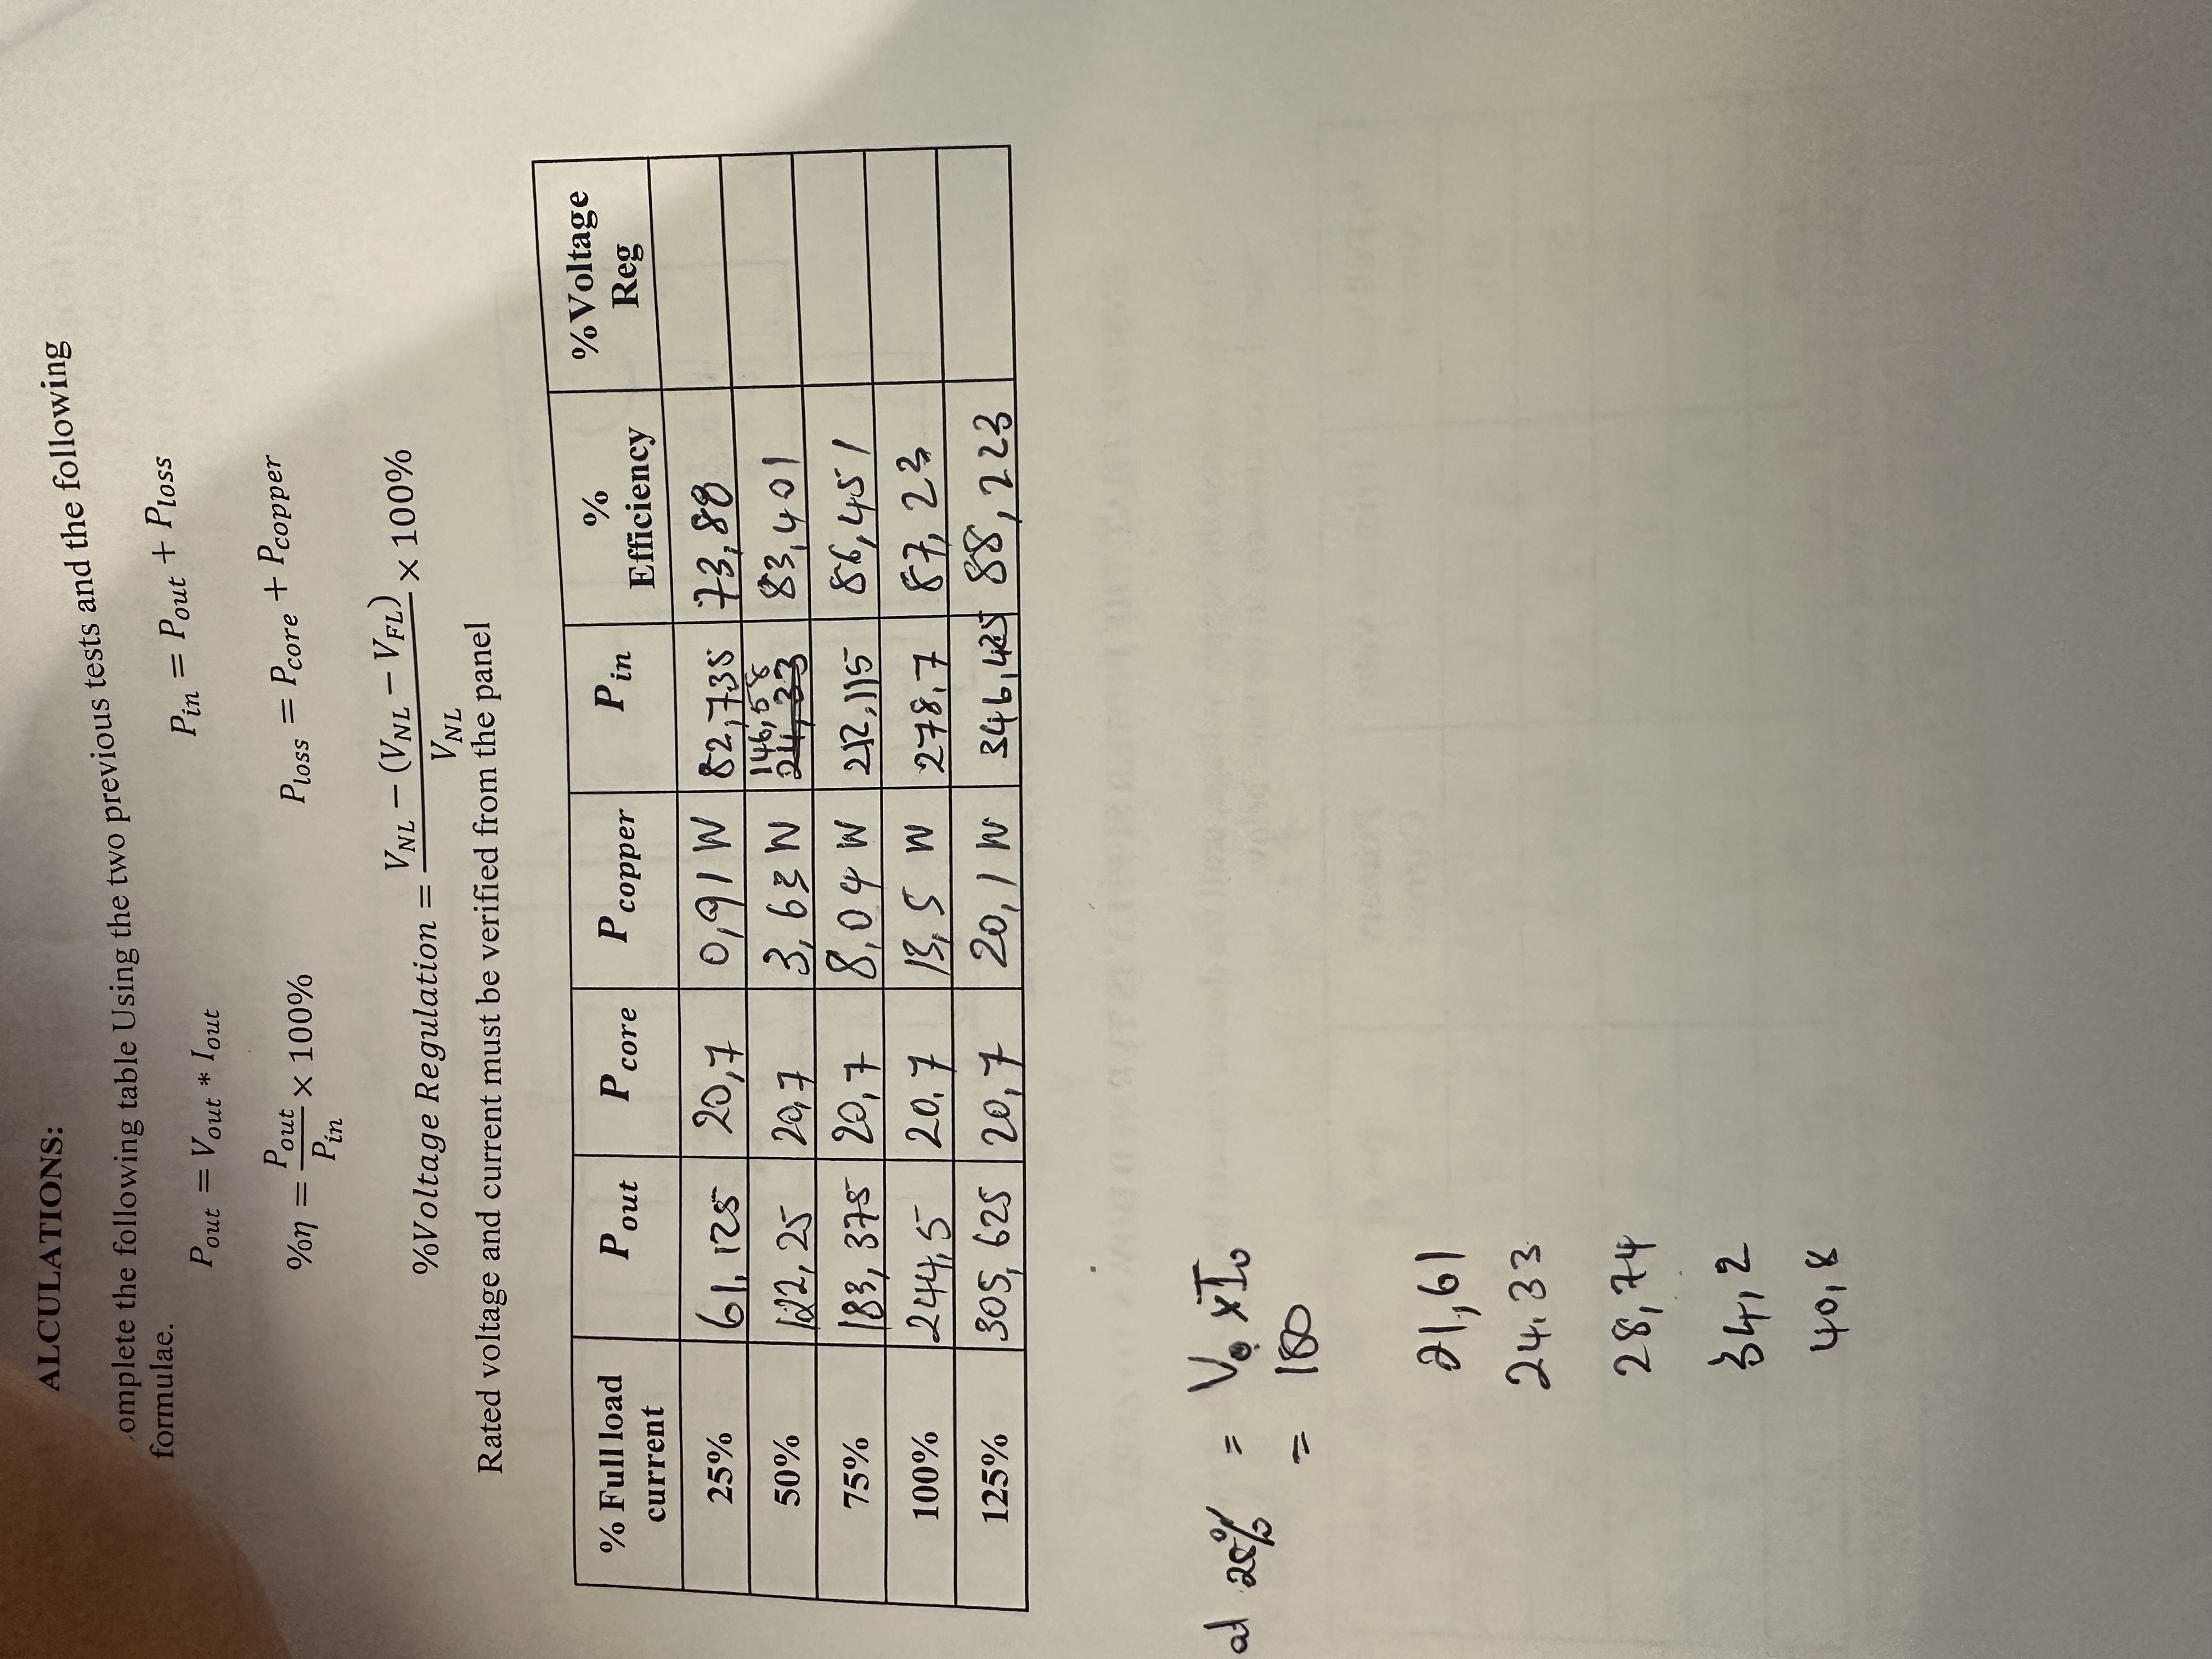 ALCULATIONS:
omplete the following table Using the two previous tests and the following
formulae.
P_out = V_out * I_out P_in = P_out + P_loss
%η = P_out / P_in × 100% P_loss = P_core + P_copper
%Voltage Regulation = V_NL − (V_NL − V_FL) / V_NL × 100%
Rated voltage and current must be verified from the panel
% Full load current P_out P_core P_copper P_in % Efficiency %Voltage Reg
25% 61,125 20,7 0,91 W 82,735 73,88
50% 122,25 20,7 3,63 W 146,58 24,33 83,401
75% 183,375 20,7 8,04 W 212,115 86,451
100% 244,5 20,7 13,5 W 278,7 87,23
125% 305,625 20,7 20,1 W 346,425 88,223
at 25% = V_o x I_o
= 180
21,61
24,33
28,74
34,2
40,8